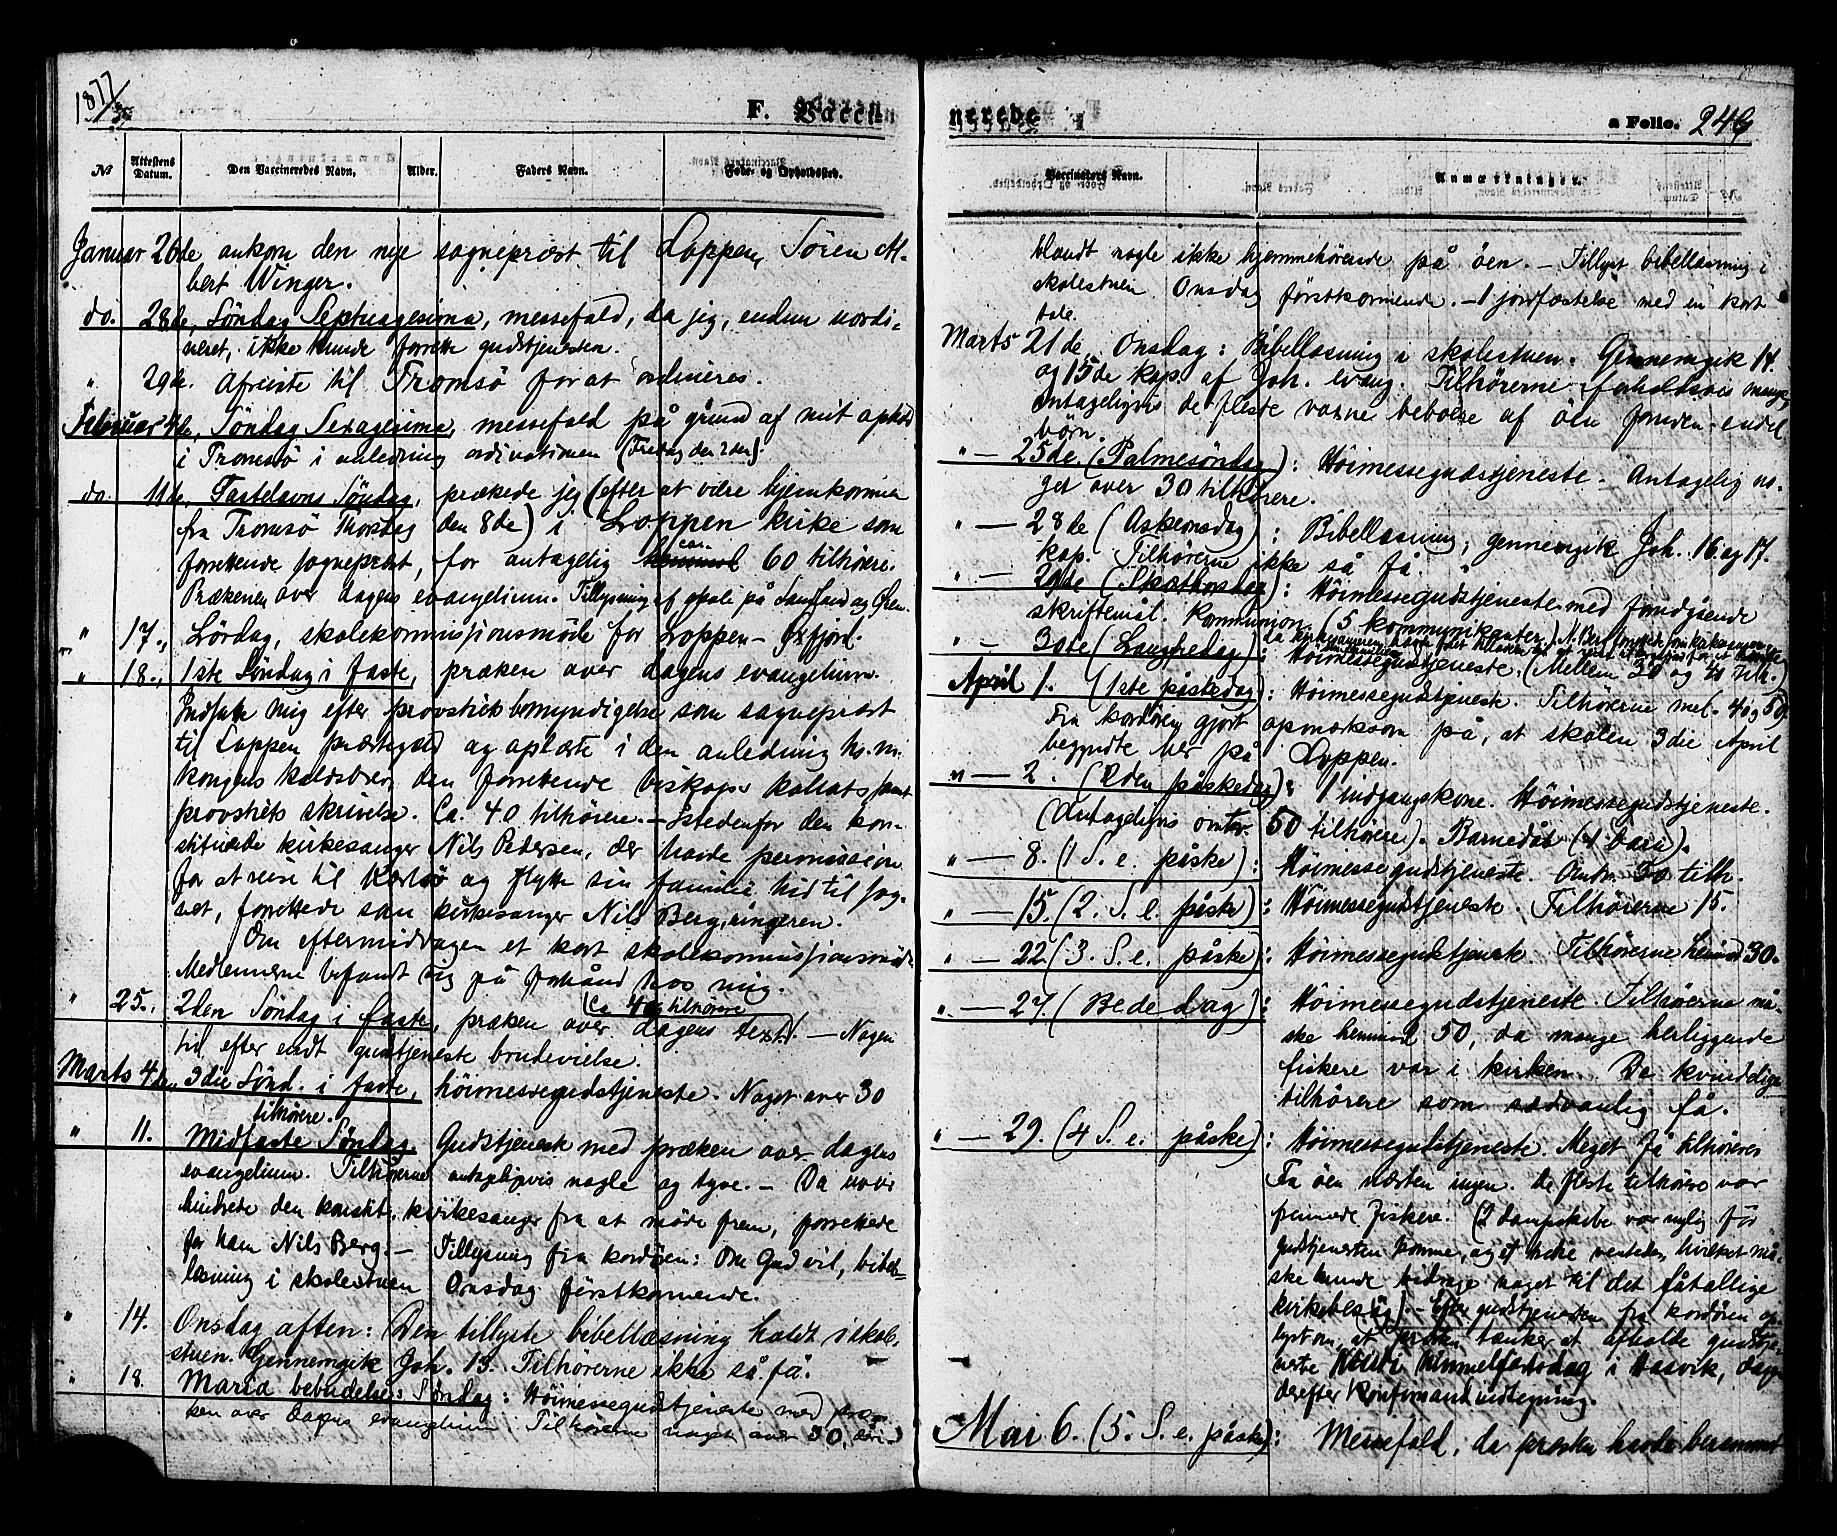 1877
F. Vacci
№ Attestens Datum. Den Vaccineredes Navn. Alder. Faders Navn. Føde- og Opholdssted.
Januar 26de, ankom den nye sogneprest til Loppen, Sören Al-
bert Winger.
do. 28de, Söndag Septuagesima, messefald, da jeg, endnu uordi-
neret, ikke kunde forrette gudstjenesten.
" 29de. Afreiste til Tromsö for at ordineres.
Februar 4de, Söndag Sexagesima, messefald på grund af mit ophold
i Tromsö i anledning ordinationen (Fredag den 2den).
do. 11de, Fastelavns Söndag, prækede jeg (efter at være hjemkommen
fra Tromsö Thorsdag den 8de) i Loppen kirke som
forrettende sogneprest, for antagelig ca. 60 tilhörere.
Prækenen over dagens evangelium. Tillysning af skole på Sandland og Ören.
" 17., Lördag, skolekommissionsmöde for Loppen – Öxfjord.
" 18., 1ste Söndag i faste, præken over dagens evangelium.
Indsatte mig efter provstiets bemyndigelse som sogneprest
til Loppen præstegjeld og oplæste i den anledning hs. m.
kongens kaldsbrev, den forrettende biskops kollats samt
provstiets skrivelse. Ca. 40 tilhörere. – Istedenfor den kon-
stituerede kirkesanger Nils Pedersen, der havde permission
for at reise til Karlsö og flytte sin familie hid til sog-
net, forrettede som kirkesanger Nils Berg, ringeren.
Om eftermiddagen et kort skolekommissionsmöde
Medlemmerne befandt sig på forhånd hos mig.
" 25., 2den Söndag i faste, præken over dagens text. (Ca. 40 tilhörere) – Nogen
tid efter endt gudstjeneste brudevielse.
Marts 4de, 3die Sönd. i faste, höimessegudstjeneste. Noget over 30
tilhörere.
" 11. Midfaste Söndag. Gudstjeneste med præken over dagens
evangelium. Tilhörerne antageligvis nogle og tyve. – Da uveir
hindrede den konstit. kirkesanger fra at möde frem, forrettede
for ham Nils Berg. – Tillysning fra kordören: Om Gud vil, bibel-
læsning i skolestuen Onsdag förstkommende.
" 14. Onsdag aften: Den tillyste bibellæsning holdt i skole-
stuen. Gennemgik Joh. 13. Tilhörerne ikke så få.
" 18. Mariæ bebudelses Söndag: Höimessegudstjeneste med præ-
ken over dagens evangelium. Tilhörerne noget over 30, deri-
nerede
a Folio. 246
Vaccinators Navn. Anmærkninger.
blandt nogle ikke hjemmehörende på öen. – Tillyst bibellæsning i
skolestuen Onsdag förstkommende. – 1 jordfæstelse med en kort
tale.
Marts 21de, Onsdag: Bibellæsning i skolestuen. Gennemgik 14.
og 15de kap. af Joh. evang. Tilhörerne forholdsvis mange,
antageligvis de fleste voxne beboere af öen foruden endel
börn.
" — 25de. (Palmesöndag): Höimessegudstjeneste. Antagelig no-
get over 30 tilhörere.
" — 28de (Askeonsdag): Bibellæsning; gennemgik Joh. 16. og 17.
kap. Tilhörerne ikke så få.
" — 29de (Skærthorsdag): Höimessegudstjeneste med foregående
skriftemål. Kommunion. (5 kommunikanter).
" — 30de (Langfredag): Höimessegudstjeneste. (Mellem 30 og 40 tilh.)
April 1. (1ste påskedag): Höimessegudstjeneste. Tilhörerne mel. 40 og 50.
Fra kordören gjort opmærksom på, at skolen 3die April
begyndte her på Loppen.
" — 2. (2den påskedag): 1 indgangskone. Höimessegudstjeneste.
(Antageligvis omtr. 50 tilhörere). Barnedåb (4 börn).
" — 8. (1 S. e. påske): Höimessegudstjeneste. Omtr. 30 tilh.
" — 15. (2. S. e. påske): Höimessegudstjeneste. Tilhörerne 15.
" — 22. (3. S. e. påske): Höimessegudstjeneste. Tilhörerne henimod 30.
" — 27. (Bededag): Höimessegudstjeneste. Tilhörerne må-
ske henimod 50, da mange herliggende
fiskere var i kirken. De kvindelige
tilhörere som sædvanlig få.
" — 29. (4 S. e. påske): Höimessegudstjeneste. Meget få tilhörere
Fra öen næsten ingen. De fleste tilhörere var
fremmede fiskere. (2 dampskibe var nylig för
gudstjenesten komne, og et tredie ventedes, hvilket må-
ske kunde bidrage noget til det fåtallige
kirkebesög). – Efter gudstjenesten fra kordören op-
lyst om, at presten tænker at afholde gudstje-
neste Kristi himmelfartsdag i Hasvik, dagen
derefter konfirmandudlegning.
Mai 6. (5. S. e. påske): Messefald, da presten havde berammet